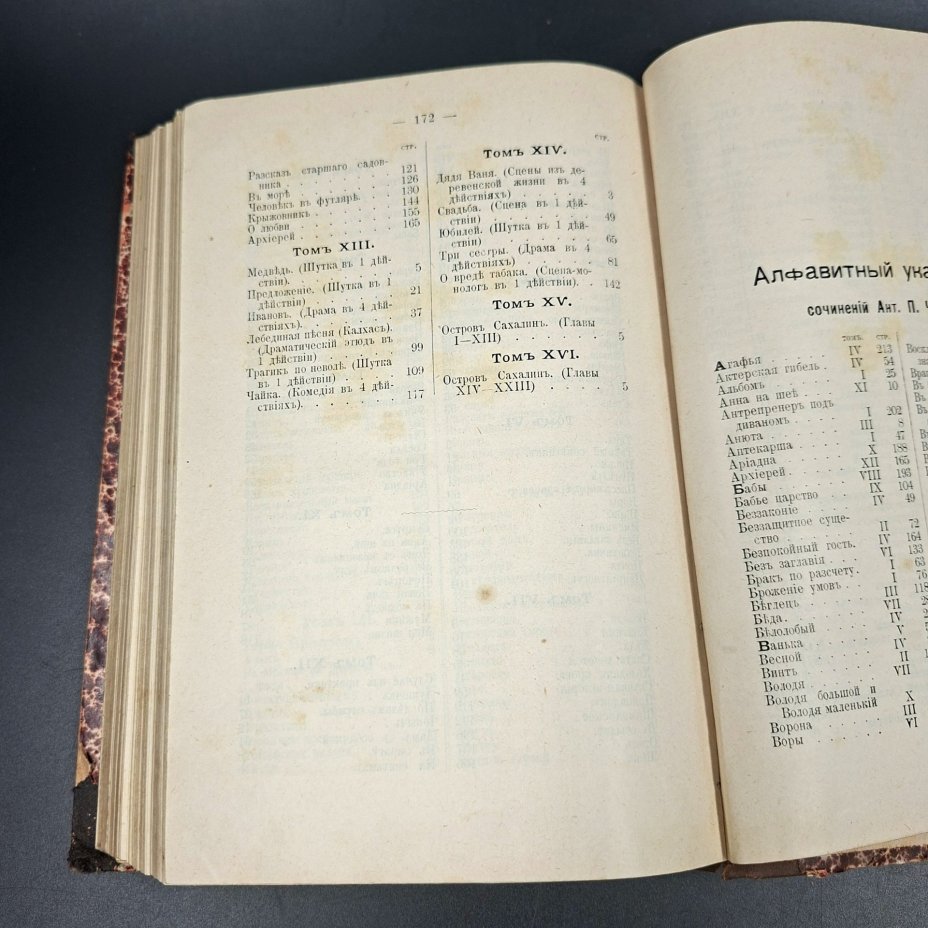 — 172 —
СТР.
Разсказъ старшаго садов-
ника . . . . . . . 121
Въ морѣ . . . . . . . 126
Человѣкъ въ футлярѣ. . . . 130
Крыжовникъ . . . . . . 144
О любви . . . . . . . 155
Архіерей . . . . . . . 165
Томъ XIII.
Медвѣдь. (Шутка въ 1 дѣй-
ствіи). . . . . . . . 5
Предложеніе. (Шутка въ 1
дѣйствіи) . . . . . . 21
Ивановъ. (Драма въ 4 дѣй-
ствіяхъ). . . . . . . 37
Лебединая пѣсня (Калхасъ).
(Драматическій этюдъ въ
1 дѣйствіи) . . . . . 99
Трагикъ по неволѣ. (Шутка
въ 1 дѣйствіи) . . . . 109
Чайка. (Комедія въ 4 дѣй-
ствіяхъ). . . . . . . 117
СТР.
Томъ XIV.
Дядя Ваня. (Сцены изъ де-
ревенской жизни въ 4
дѣйствіяхъ) . . . . . 3
Свадьба. (Сцена въ 1 дѣй-
ствіи) . . . . . . . 49
Юбилей. (Шутка въ 1 дѣй-
ствіи) . . . . . . . 65
Три сестры. (Драма въ 4
дѣйствіяхъ) . . . . . 81
О вредѣ табака. (Сцена-мо-
нологъ въ 1 дѣйствіи). . 142
Томъ XV.
Островъ Сахалинъ. (Главы
I—XIII) . . . . . . . 5
Томъ XVI.
Островъ Сахалинъ. (Главы
XIV—XXIII) . . . . . 5
Алфавитный ука
сочиненій Ант. П. Ч
ТОМЪ. СТР.
Агафья . . . . . IV 213
Актерская гибель . IV 54
Альбомъ . . . . . I 25
Анна на шеѣ . . . XI 10
Антрепренеръ подъ
диваномъ . . . . I 202
Анюта . . . . . . III 8
Аптекарша . . . . I 47
Аріадна . . . . . X 188
Архіерей . . . . . XII 165
Бабы . . . . . . VIII 193
Бабье царство . . . IX 104
Беззаконіе . . . . IV 49
Беззащитное суще-
ство . . . . . . II 72
Безпокойный гость. IV 164
Безъ заглавія . . . VI 133
Бракъ по разсчету. I 63
Броженіе умовъ . . I 76
Бѣглецъ . . . . . III 118
Бѣда. . . . . . . VII
Бѣлолобый . . . . IV
Ванька . . . . . V
Весной . . . . . IV
Винтъ . . . . . . II
Володя . . . . . VII
Володя большой и
Володя маленькій X
Ворона . . . . . III
Воры . . . . . . VI